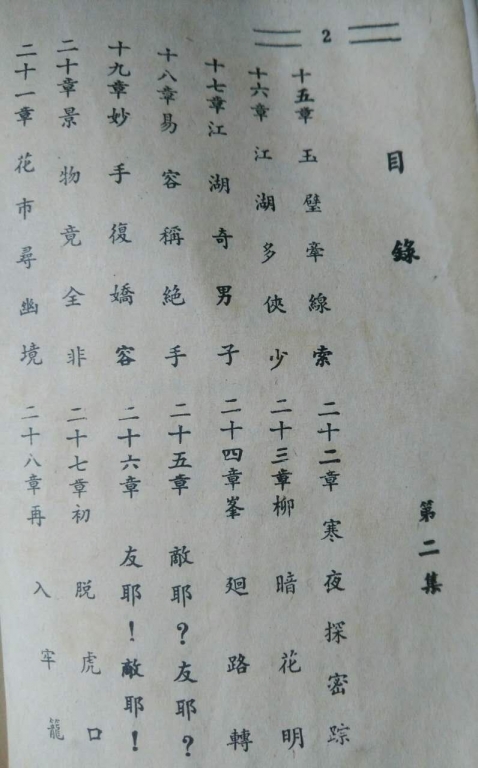 2
目錄
第二集
十五章 玉璧牽線索
十六章 江湖多俠少
十七章 江湖奇男子
十八章 易容稱絶手
十九章 妙手復嬌容
二十章 景物竟全非
二十一章 花市尋幽境
二十二章 寒夜探密踪
二十三章 柳暗花明
二十四章 峯廻路轉
二十五章 敵耶?友耶?
二十六章 友耶!敵耶!
二十七章 初脱虎口
二十八章 再入牢籠